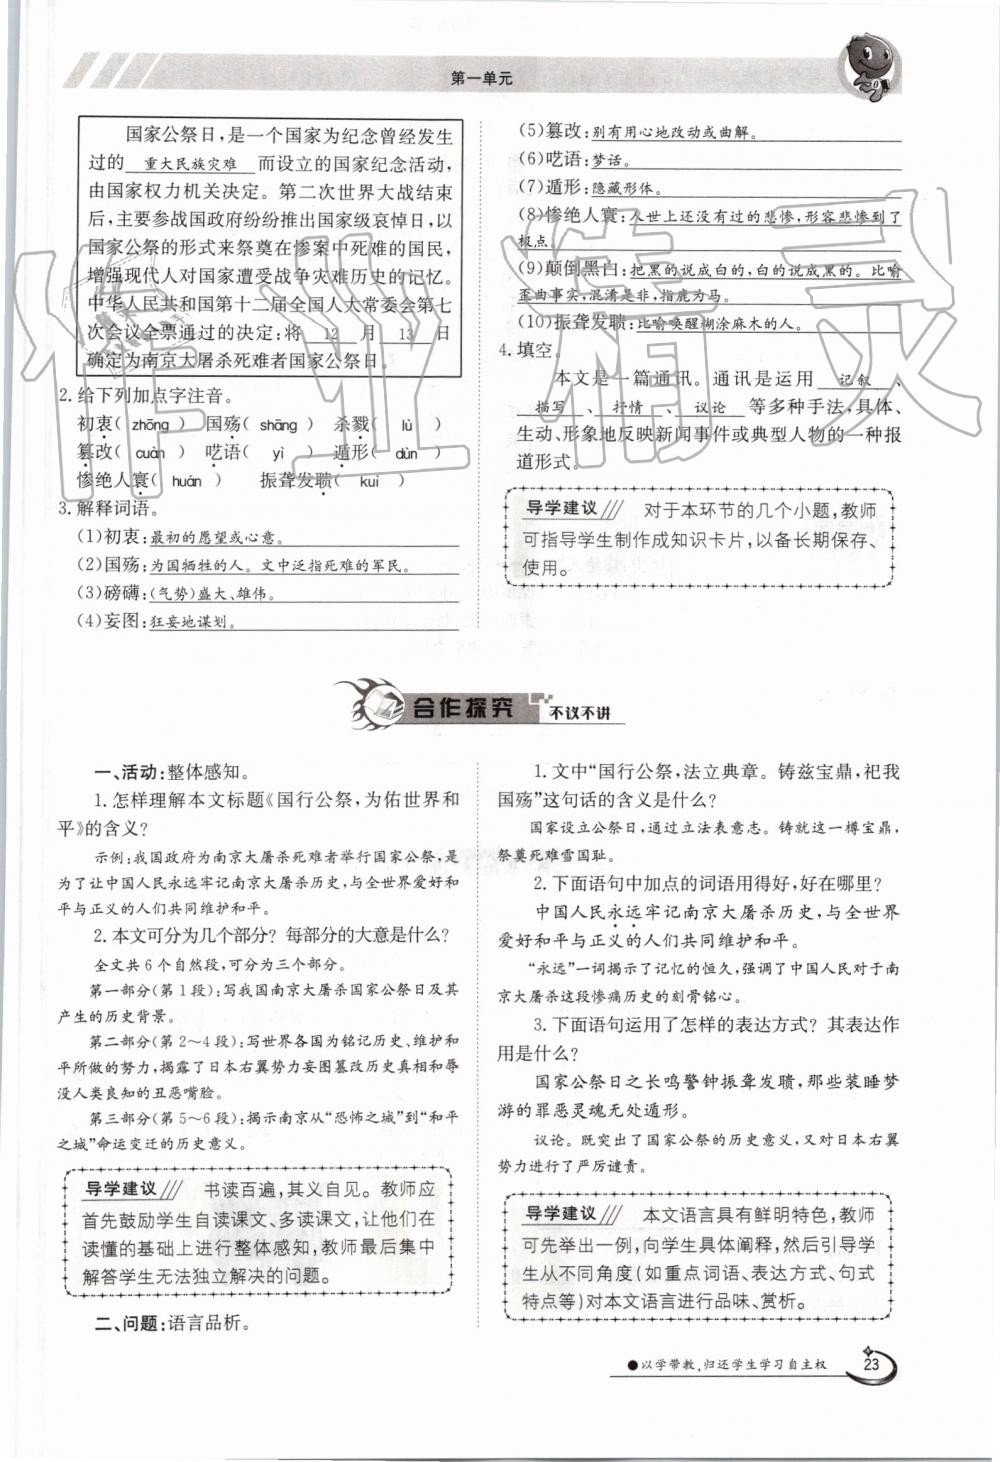 第一单元
国家公祭日,是一个国家为纪念曾经发生
过的 重大民族灾难 而设立的国家纪念活动,
由国家权力机关决定。第二次世界大战结束
后,主要参战国政府纷纷推出国家级哀悼日,以
国家公祭的形式来祭奠在惨案中死难的国民,
增强现代人对国家遭受战争灾难历史的记忆。
中华人民共和国第十二届全国人大常委会第七
次会议全票通过的决定:将 12 月 13 日
确定为南京大屠杀死难者国家公祭日。
2. 给下列加点字注音。
初衷( zhōng ) 国殇( shāng ) 杀戮( lù )
篡改( cuàn ) 呓语( yì ) 遁形( dùn )
惨绝人寰( huán ) 振聋发聩( kuì )
3. 解释词语。
(1)初衷:最初的愿望或心意。
(2)国殇:为国牺牲的人。文中泛指死难的军民。
(3)磅礴:(气势)盛大、雄伟。
(4)妄图:狂妄地谋划。
(5)篡改:别有用心地改动或曲解。
(6)呓语:梦话。
(7)遁形:隐藏形体。
(8)惨绝人寰:人世上还没有过的悲惨,形容悲惨到了
极点。
(9)颠倒黑白:把黑的说成白的,白的说成黑的。比喻
歪曲事实,混淆是非,指鹿为马。
(10)振聋发聩:比喻唤醒糊涂麻木的人。
4. 填空。
本文是一篇通讯。通讯是运用 记叙 、
描写 、 抒情 、 议论 等多种手法,具体、
生动、形象地反映新闻事件或典型人物的一种报
道形式。
导学建议/// 对于本环节的几个小题,教师
可指导学生制作成知识卡片,以备长期保存、
使用。
合作探究 不议不讲
一、活动:整体感知。
1. 怎样理解本文标题《国行公祭,为佑世界和
平》的含义?
示例:我国政府为南京大屠杀死难者举行国家公祭,是
为了让中国人民永远牢记南京大屠杀历史,与全世界爱好和
平与正义的人们共同维护和平。
2. 本文可分为几个部分? 每部分的大意是什么?
全文共 6 个自然段,可分为三个部分。
第一部分(第 1 段):写我国南京大屠杀国家公祭日及其
产生的历史背景。
第二部分(第 2～4 段):写世界各国为铭记历史、维护和
平所做的努力,揭露了日本右翼势力妄图篡改历史真相和辱
没人类良知的丑恶嘴脸。
第三部分(第 5～6 段):揭示南京从“恐怖之城”到“和平
之城”命运变迁的历史意义。
导学建议/// 书读百遍,其义自见。教师应
首先鼓励学生自读课文、多读课文,让他们在
读懂的基础上进行整体感知,教师最后集中
解答学生无法独立解决的问题。
二、问题:语言品析。
1. 文中“国行公祭,法立典章。铸兹宝鼎,祀我
国殇”这句话的含义是什么?
国家设立公祭日,通过立法表意志。铸就这一樽宝鼎,
祭奠死难雪国耻。
2. 下面语句中加点的词语用得好,好在哪里?
中国人民永远牢记南京大屠杀历史,与全世界
爱好和平与正义的人们共同维护和平。
“永远”一词揭示了记忆的恒久,强调了中国人民对于南
京大屠杀这段惨痛历史的刻骨铭心。
3. 下面语句运用了怎样的表达方式? 其表达作
用是什么?
国家公祭日之长鸣警钟振聋发聩,那些装睡梦
游的罪恶灵魂无处遁形。
议论。既突出了国家公祭的历史意义,又对日本右翼
势力进行了严厉谴责。
导学建议/// 本文语言具有鲜明特色,教师
可先举出一例,向学生具体阐释,然后引导学
生从不同角度(如重点词语、表达方式、句式
特点等)对本文语言进行品味、赏析。
●以学带教,归还学生学习自主权
23
作业精灵